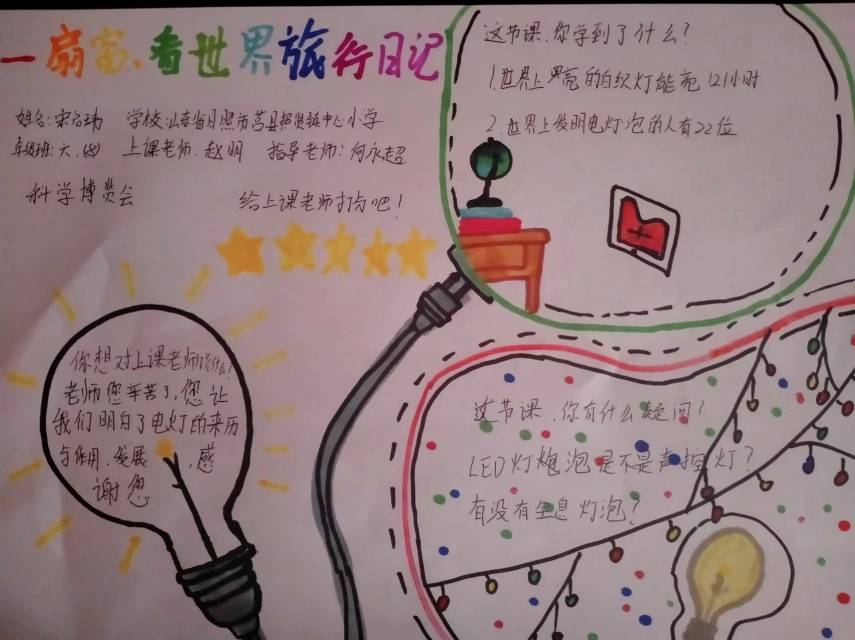 一扇窗、看世界旅行日记
姓名:宋启玮 学校:山东省日照市莒县招贤镇中心小学
年级班:六、(8) 上课老师:赵明 指导老师:何永超
科学博览会
给上课老师打分吧!
你想对上课老师说什么?
老师您辛苦了,您让
我们明白了电灯的来历
与作用、发展,感
谢您
这节课、你学到了什么?
1.世界上最亮的白织灯能亮121小时
2.世界上发明电灯泡的人有22位
这节课、你有什么疑问?
LED灯炮泡是不是声控灯?
有没有全息灯泡?